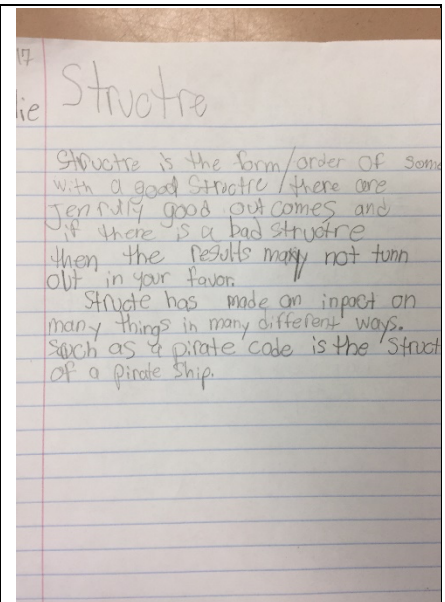 17
lie
Structre
Structre is the form/order of some
with a good Structre/there are
Jenrully good out comes and
if there is a bad structre
then the results may not tunn
out in your favor.
Structe has made an inpact on
many things in many different ways.
Such as a pirate code is the Struct
of a pirate Ship.